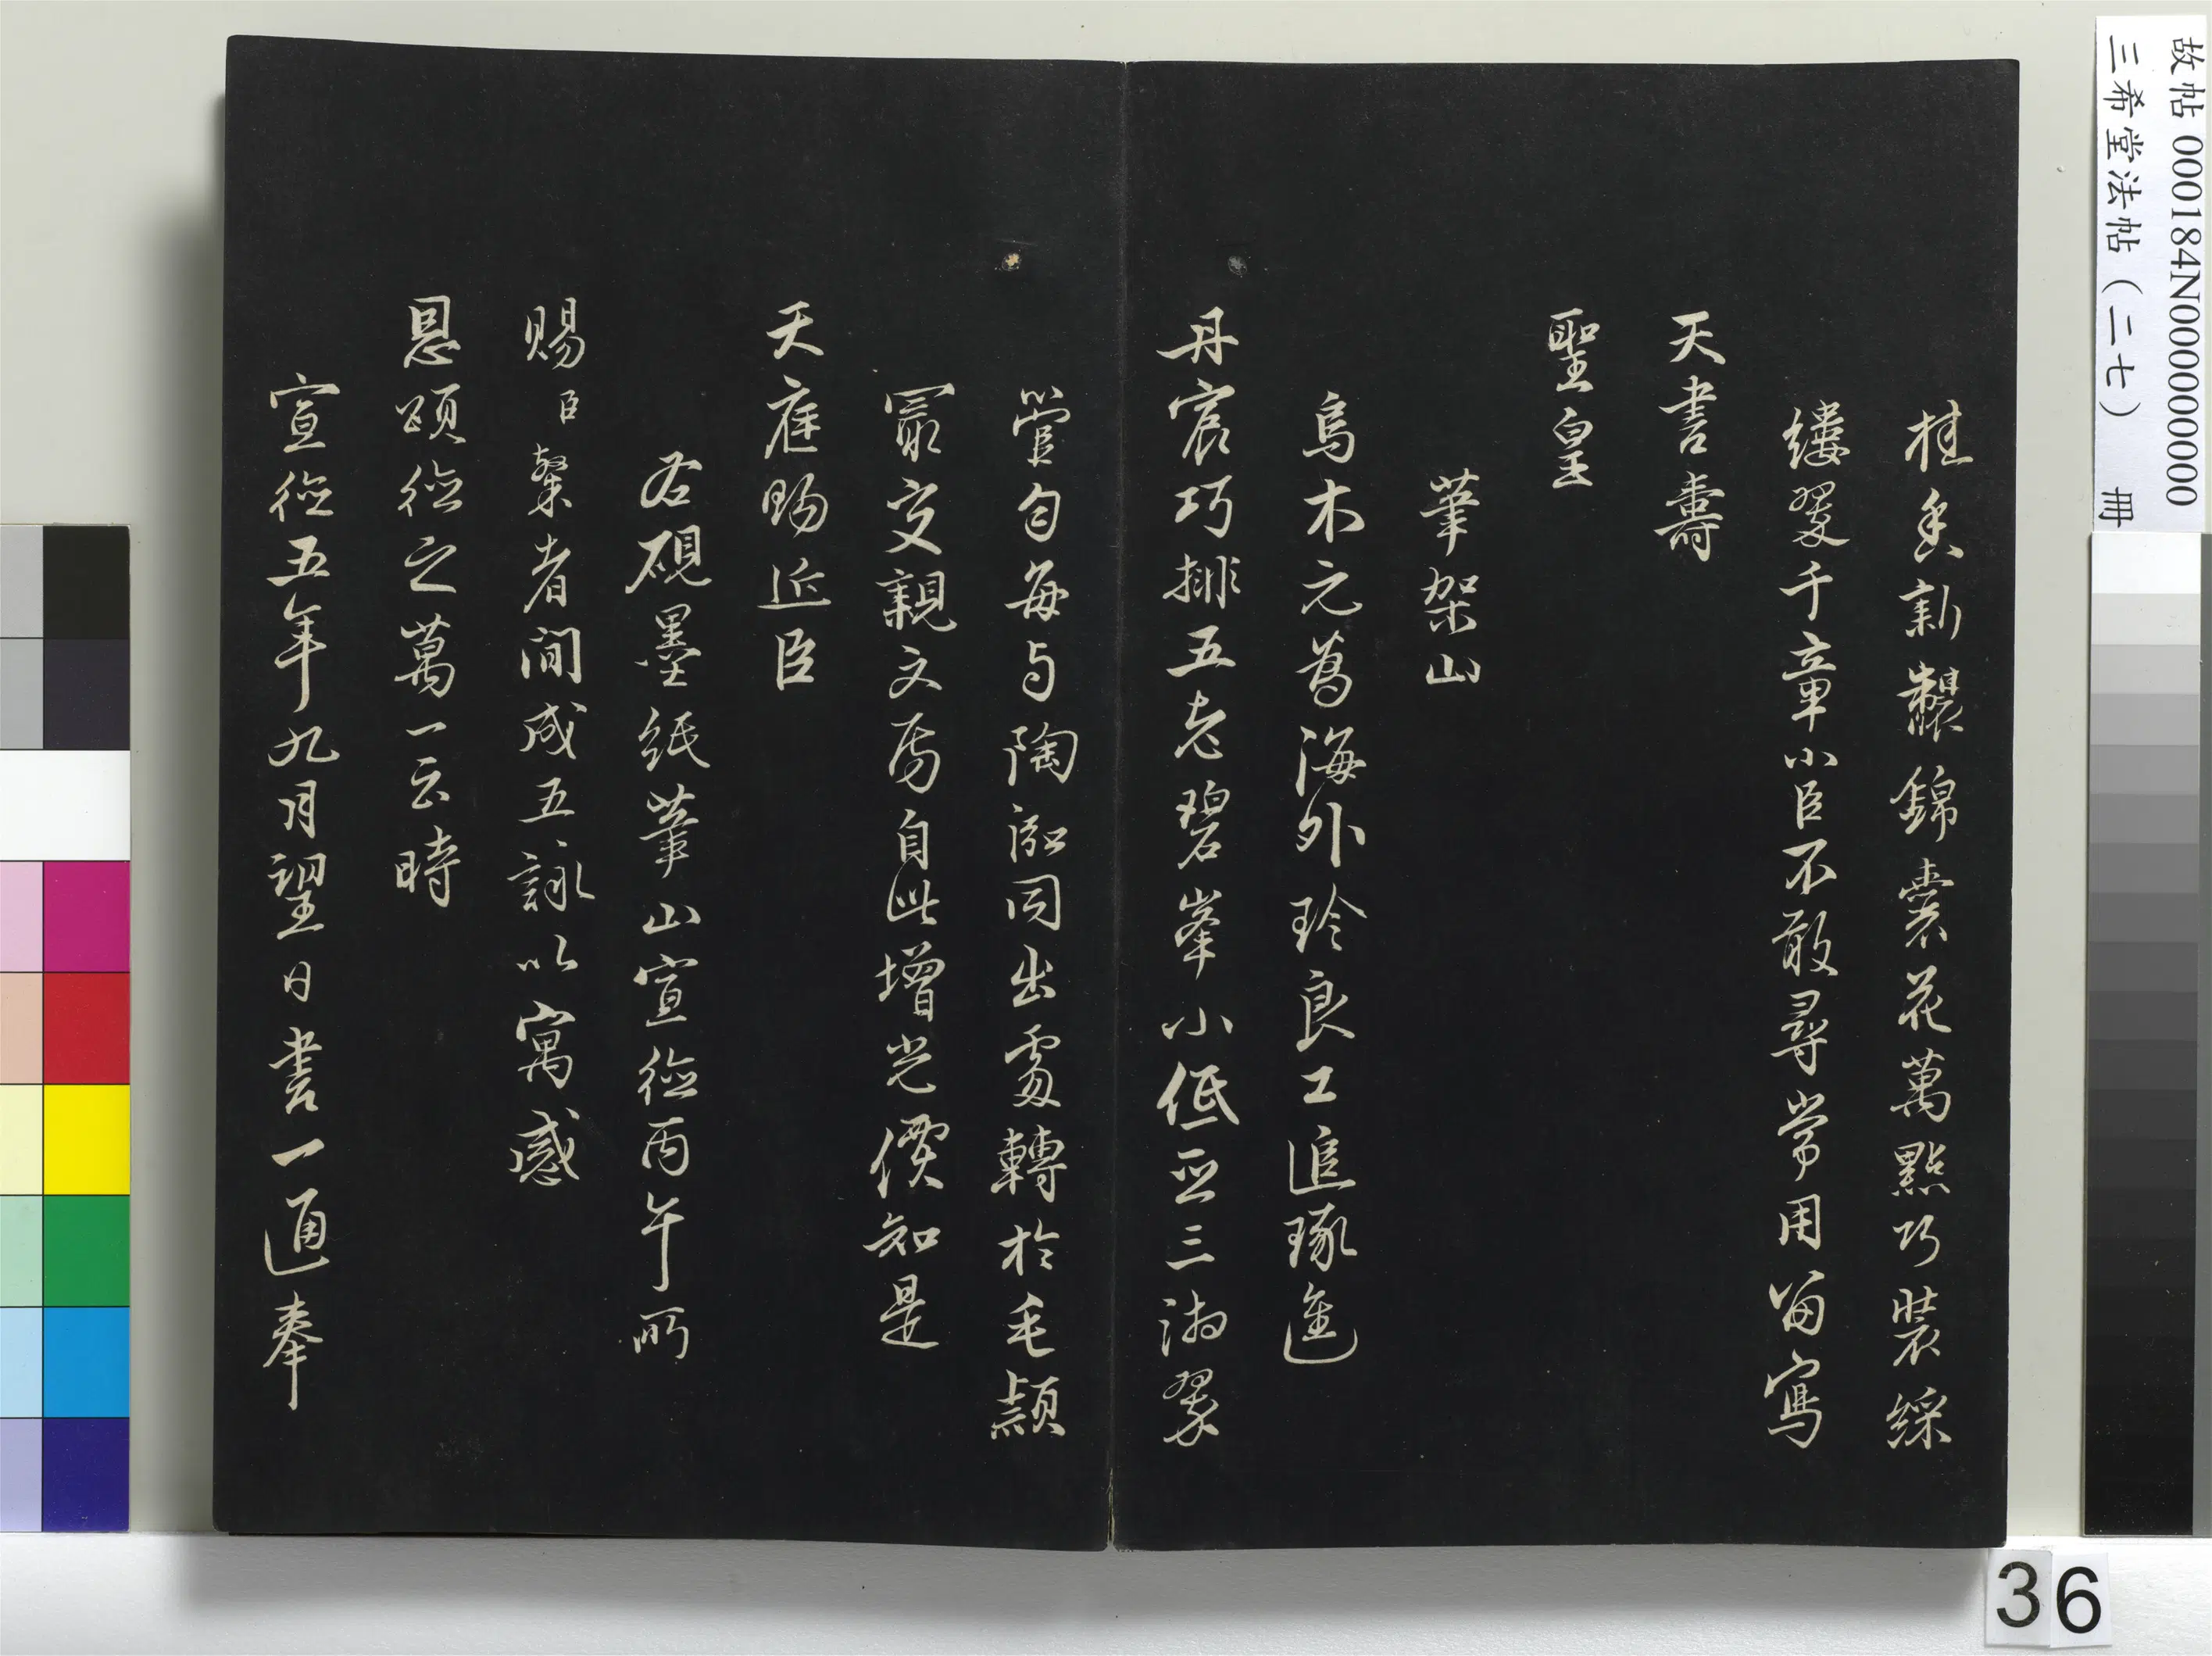 桂香新製錦囊花萬點巧裝綵
縷翠千章小臣不敢尋常用留寫
天書壽
聖皇
筆架山
烏木元為海外珍良工追琢進
丹宸巧排五老碧峯小低亞三湘翠
管勻每与陶泓同出處轉於毛穎
最交親文房自此增光價知是
天庭賜近臣
右硯墨紙筆山宣德丙午所
賜臣榮者間成五詠以寓感
恩頌德之萬一云時
宣德五年九月望日書一通奉
故帖 000184N000000000
三希堂法帖（二七） 冊
36